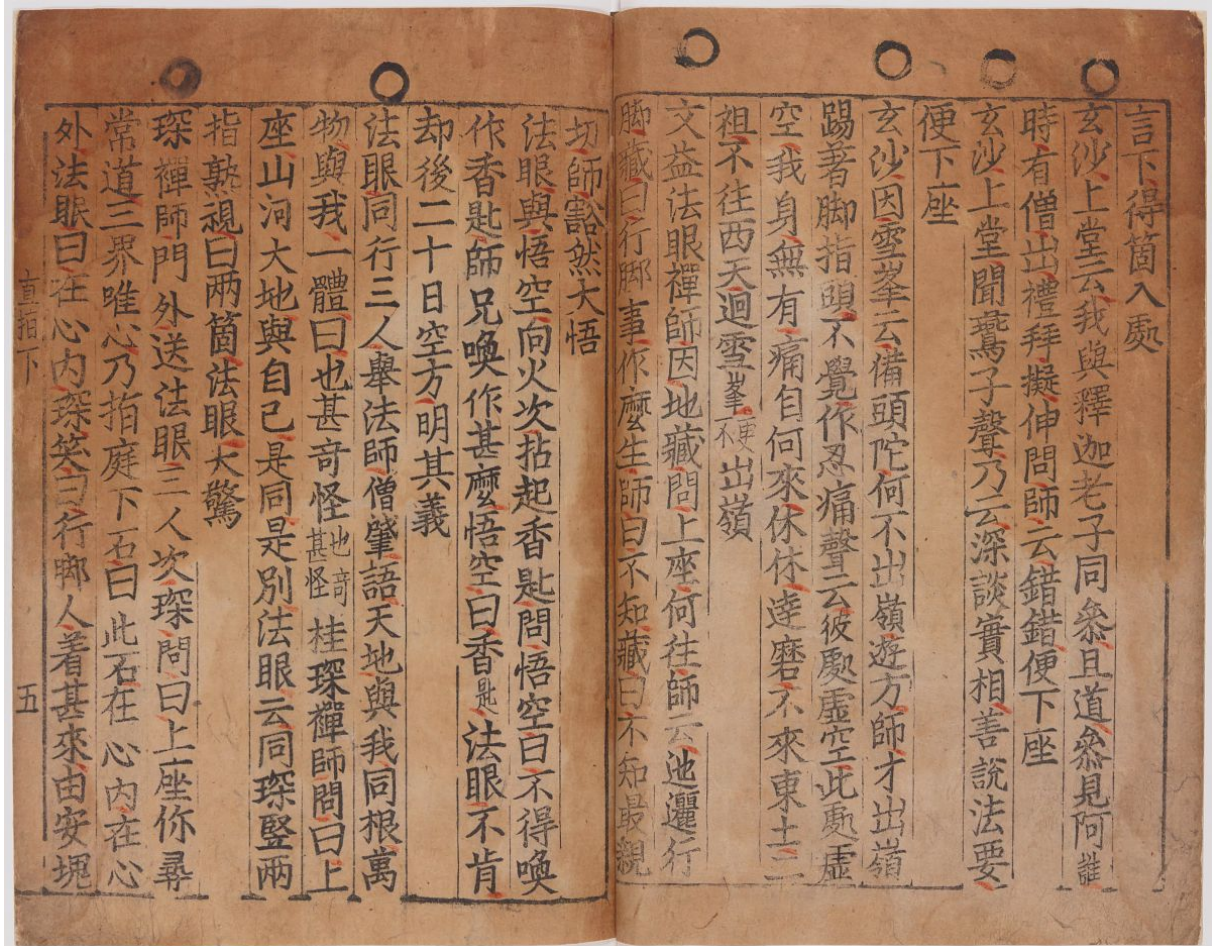 言下得箇入處
玄沙上堂云我與釋迦老子同叅且道叅見阿誰
時有僧出禮拜擬伸問師云錯錯便下座
玄沙上堂聞鷰子聲乃云深談實相善說法要
便下座
玄沙因雪峯云備頭陀何不出嶺遊方師才出嶺
踢著脚指頭不覺作忍痛聲云彼處虛空此處虛
空我身無有痛自何來休休達磨不來東土二
祖不往西天迴雪峯一生不出嶺
文益法眼禪師因地藏問上座何往師云迆邐行
脚藏曰行脚事作麽生師曰不知藏曰不知最親
切師豁然大悟
法眼與悟空向火次拈起香匙問悟空曰不得喚
作香匙師兄喚作甚麽悟空曰香匙法眼不肯
却後二十日空方明其義
法眼同行三人舉法師僧肇語天地與我同根萬
物與我一體曰也甚奇怪也奇甚怪桂琛禪師問曰上
座山河大地與自己是同是別法眼云同琛竪兩
指熟視曰兩箇法眼大驚
琛禪師門外送法眼三人次琛問曰上座你尋
常道三界唯心乃指庭下石曰此石在心內在心
外法眼曰在心內琛笑曰行脚人着甚來由安塊
直指下 五